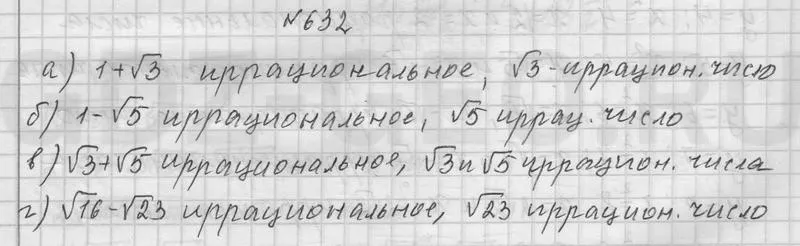 №632
а) 1+√3 иррациональное, √3 - иррацион. число
б) 1-√5 иррациональное, √5 иррац. число
в) √3+√5 иррациональное, √3 и √5 иррацион. числа
г) √16-√23 иррациональное, √23 иррацион. число